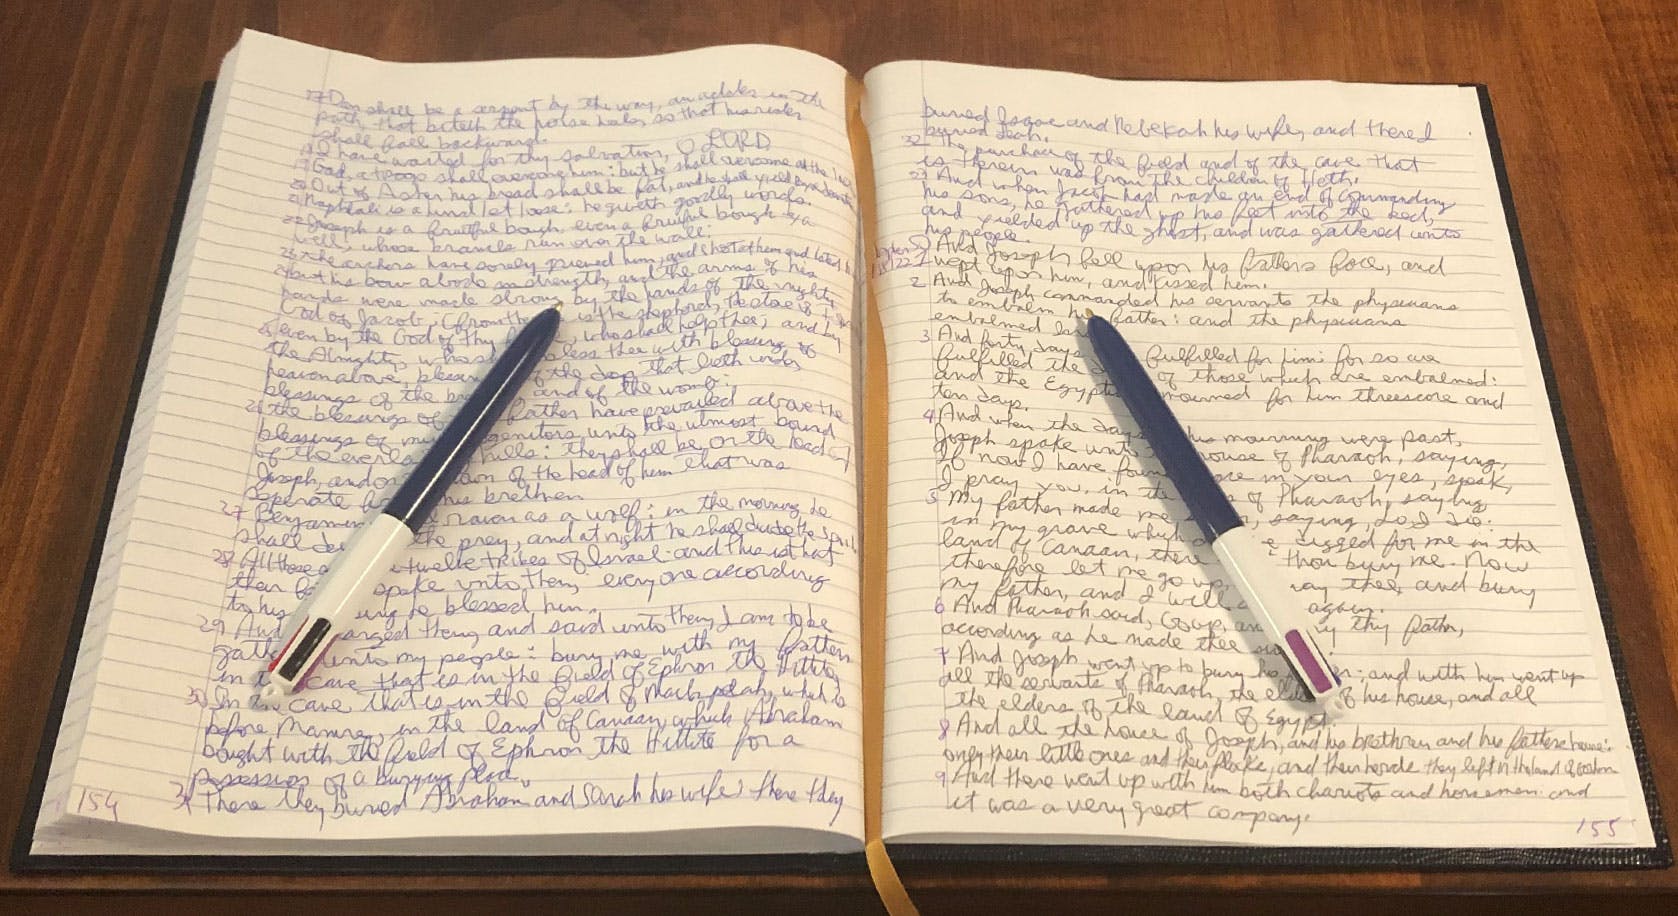 17 Dan shall be a serpent by the way, an adder in the
path that biteth the horse heels, so that his rider
shall fall backward.
18 I have waited for thy salvation, O LORD
19 Gad, a troop shall overcome him: but he shall overcome at the last
20 Out of Asher his bread shall be fat, and he shall yield royal dainties
21 Naphtali is a hind let loose: he giveth goodly words.
22 Joseph is a fruitful bough, even a fruitful bough by a
well, whose branches run over the wall:
23 the archers have sorely grieved him, and shot at him and hated him
24 but his bow abode in strength, and the arms of his
hands were made strong by the hands of the mighty
God of Jacob: (from the is the shepherd, the stone of
25 even by the God of thy who shall help thee; and by
the Almighty, who bless thee with blessings of
heaven above, of the deep that lieth under
blessings of the and of the womb:
26 the blessings of father have prevailed above the
blessings of my unto the utmost bound
of the hills: they shall be on the head of
Joseph, and on of the head of him that was
separate his brethren
27 Benjamin raven as a wolf: in the morning he
shall the prey, and at night he shall divide the spoil
28 All these twelve tribes of Israel: and this is that
their spake unto them; every one according
to his he blessed him.
29 And them, and said unto them, I am to be
unto my people: bury me with my fathers
in cave that is in the field of Ephron the Hittite,
30 In cave that is in the field of Machpelah, which is
before Mamre, in the land of Canaan, which Abraham
bought with the field of Ephron the Hittite for a
possession of a burying place.
31 There they buried Abraham and Sarah his wife; there they
154
buried Isaac and Rebekah his wife, and there I
buried Leah.
32 The purchase of the field and of the cave that
is therein was from the children of Heth.
33 And when Jacob had made an end of commanding
his sons, he gathered up his feet into the bed,
and yielded up the ghost, and was gathered unto
his people.
And Joseph fell upon his fathers face, and
wept upon him, and kissed him.
2 And Joseph commanded his servants the physicians
to embalm his father: and the physicians
embalmed
3 And forty days fulfilled for him: for so are
fulfilled the of those which are embalmed:
and the mourned for him threescore and
ten days.
4 And when the days his mourning were past,
Joseph spake unto house of Pharaoh, saying,
If now I have in your eyes, speak,
I pray you, in the of Pharaoh, saying
5 My father made me saying, Lo, I die:
in my grave which digged for me in the
land of Canaan, there thou bury me. Now
therefore let me go up, thee, and bury
my father, and I will again.
6 And Pharaoh said, Go up, and thy father,
according as he made thee
7 And Joseph went up to bury his and with him went up
all the servants of Pharaoh, the elders of his house, and all
the elders of the land of Egypt.
8 And all the house of Joseph, and his brethren and his fathers house:
only their little ones and their flocks, and their herds they left in the land of Goshen
9 And there went up with him both chariots and horsemen: and
it was a very great company.
155